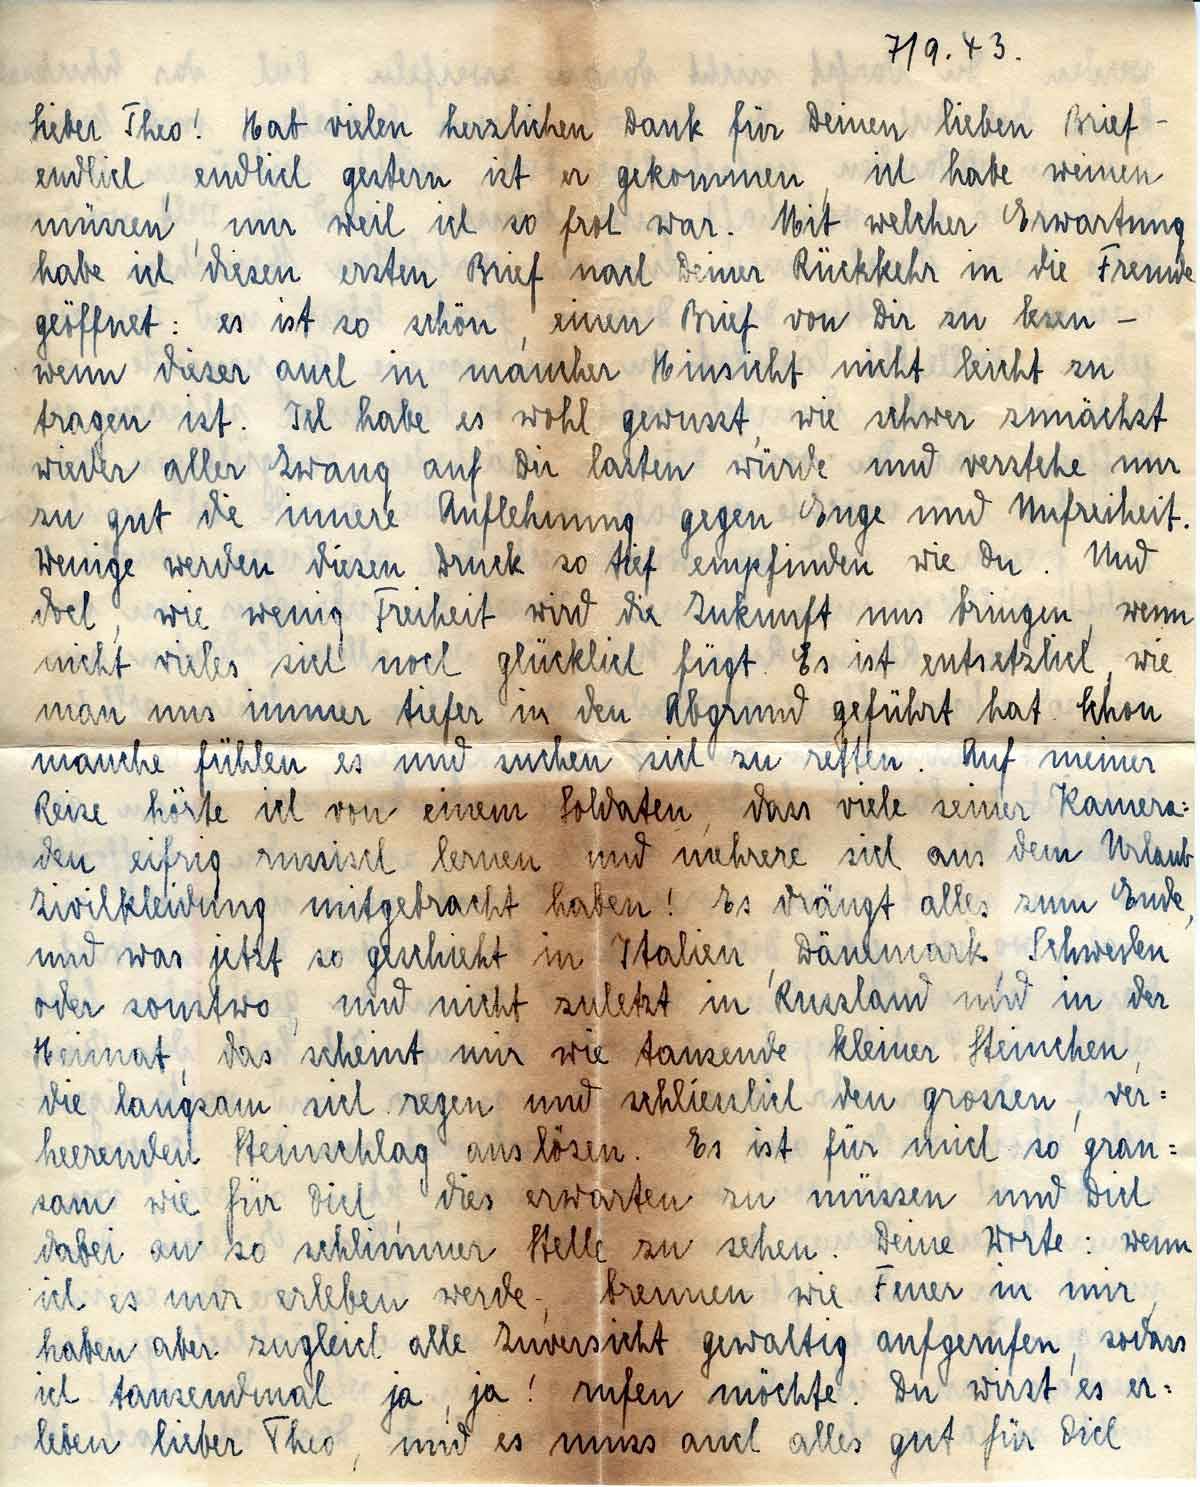 7/9.43.
Lieber Theo! Hab vielen herzlichen Dank für Deinen lieben Brief –
endlich, endlich gestern ist er gekommen, ich habe weinen
müssen, nur weil ich so froh war. Mit welcher Erwartung
habe ich diesen ersten Brief nach Deiner Rückkehr in die Fremde
geöffnet: es ist so schön, einen Brief von Dir zu lesen –
wenn dieser auch in mancher Hinsicht nicht leicht zu
tragen ist. Ich habe es wohl gewusst, wie schwer zunächst
wieder aller Zwang auf Dir lasten würde und verstehe nur
zu gut die innere Auflehnung gegen Enge und Unfreiheit.
Wenige werden diesen Druck so tief empfinden wie Du. Und
doch, wie wenig Freiheit wird die Zukunft uns bringen, wenn
nicht vieles sich noch glücklich fügt. Es ist entsetzlich, wie
man uns immer tiefer in den Abgrund geführt hat. Schon
manche fühlen es und suchen sich zu retten. Auf meiner
Reise hörte ich von einem Soldaten, dass viele seiner Kamera=
den eifrig russisch lernen und mehrere sich aus dem Urlaub
Zivilkleidung mitgebracht haben! Es drängt alles zum Ende,
und was jetzt so geschieht in Italien, Dänemark, Schweden
oder sonstwo, und nicht zuletzt in Russland und in der
Heimat, das scheint mir wie tausende kleiner Steinchen,
die langsam sich regen und schliesslich den grossen, ver=
heerenden Steinschlag auslösen. Es ist für mich so grau=
sam wie für Dich, dies erwarten zu müssen und Dich
dabei an so schlimmer Stelle zu sehen. Deine Worte: wenn
ich es nur erleben werde –, brennen wie Feuer in mir,
haben aber zugleich alle Zuversicht gewaltig aufgerufen, sodass
ich tausendmal ja, ja! rufen möchte. Du wirst es er=
leben lieber Theo, und es muss auch alles gut für Dich